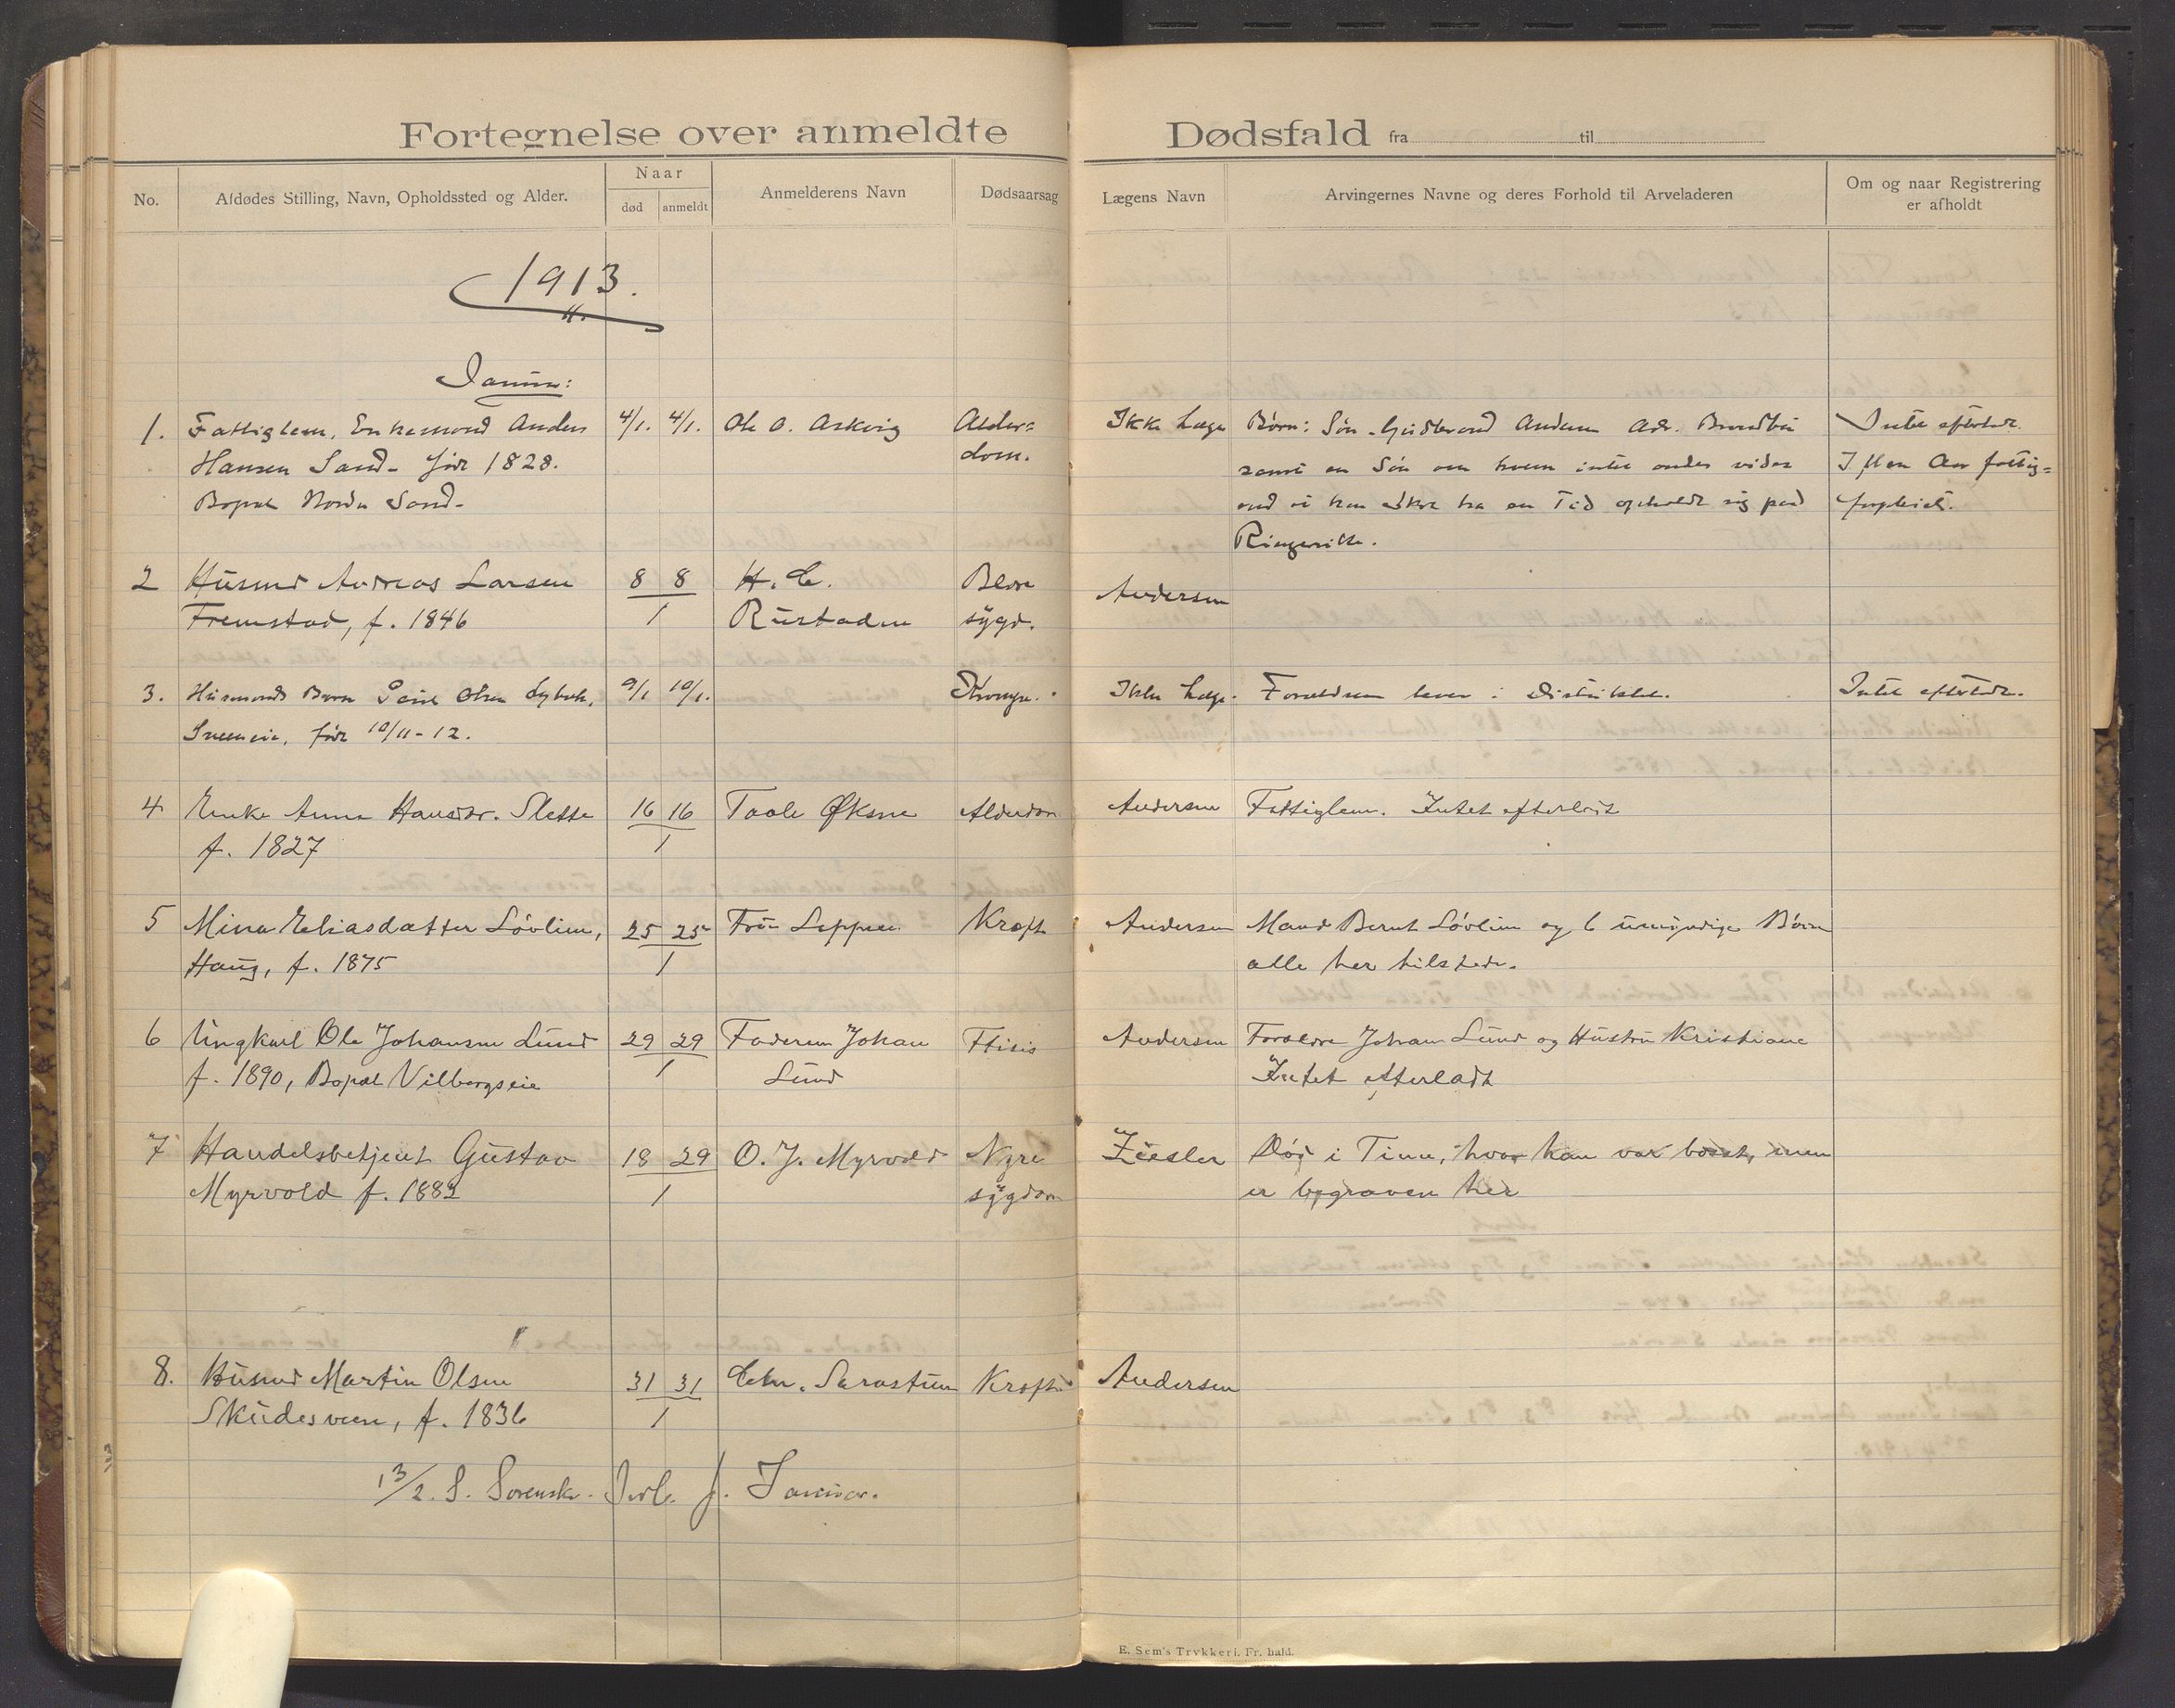 Fortegnelse over anmeldte Dødsfald fra til
No. Afdødes Stilling, Navn, Opholdssted og Alder. Naar død anmeldt Anmelderens Navn Dødsaarsag Lægens Navn Arvingernes Navne og deres Forhold til Arveladeren Om og naar Registrering er afholdt
1913.
Januar:
1. Fattiglem, Enkemand Anders 4/1. 4/1. Ole O. Askvig Alder= Ikke Læge Børn: Søn Anders Intet efterladt.
Hansen Sand. født 1828. dom. samt en Søn om hvem intet andet vides
Bopæl Nordre Sand. end at han skal ha en Tid opholdt sig paa
Ringerike.
2 Husmd Andreas Larsen 8 8 H. C. Blære Andersen
Fremstad, f. 1846 1 Rustaden sygd.
3. Husmands Barn Olsen 9/1 10/1. Ikke Læge. Forældrene lever i Distriktet. Intet efterladt.
født 10/11-12.
4 Enke Anne Hansdr. Slette 16 16 Taale Øksne Alderdom Andersen Fattiglem. Intet efterladt
f. 1827 1
5 Mina Eliasdatter Løvlien, 25 25 Fru Leppen Kræft Andersen Mand Bernt Løvlien og 6 umyndige Børn
Haug, f. 1875 1 alle her tilstede.
6 Ungkarl Ole Johansen Lund 29 29 Faderen Johan Ftisis Andersen Forældre Johan Lund og Hustru Kristiane
f. 1890, Bopæl Vilbergseie 1 Lund Intet efterladt
7 Handelsbetjent Gustav 18 29 O. J. Myrvold Nyre Ziesler Død i Tinn, hvor han var bosat, men
Myrvold f. 1882 1 sygdom er begraven her
8. Husmd Martin Olsen 31 31 Chr. Sarastuen Kræft Andersen
Skudesveen, f. 1836 1
13/2. S. Sorenskr. Indb. f. Januar.
E. Sem's Trykkeri. Fr. hald.